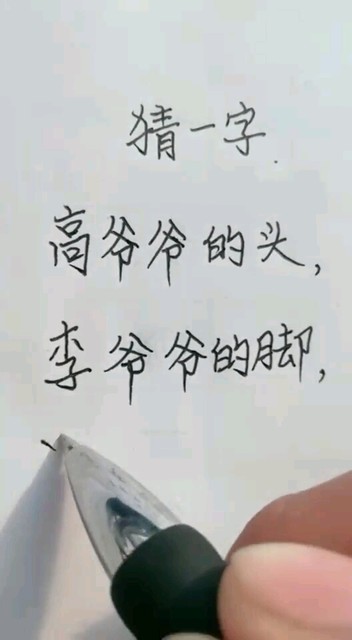 猜一字
高爷爷的头，
李爷爷的脚，